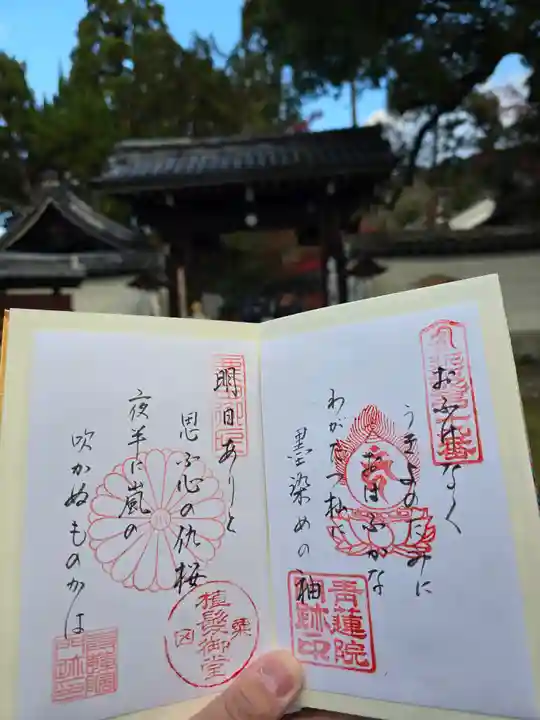 おふけなく
うきよのたみに
おほふかな
わがたつ杣に
墨染めの袖
青蓮院
門跡之印
明日ありと
思ふ心の仇桜
夜半に嵐の
吹かぬものかは
植髪御堂
粟
青蓮院
門跡之印